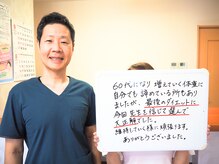 60代になり増えていく体重に
自分でも諦めている所もあり
ましたが、最後のダイエットに
今回先生を信じて選んで
大正解でした。
維持していく様に頑張ります。
ありがとうございました。